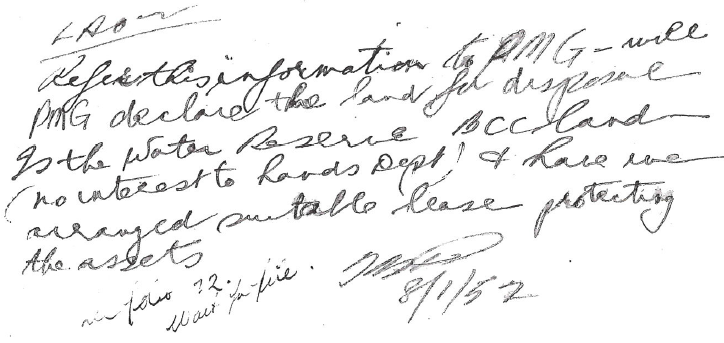 Refer this information to PMG - will
PMG declare the land for disposal
Is the Water Reserve BCC land
(no interest to Lands Dept) & have we
arranged suitable lease protecting
the assets
folio 72.
Wait for file.
8/1/52